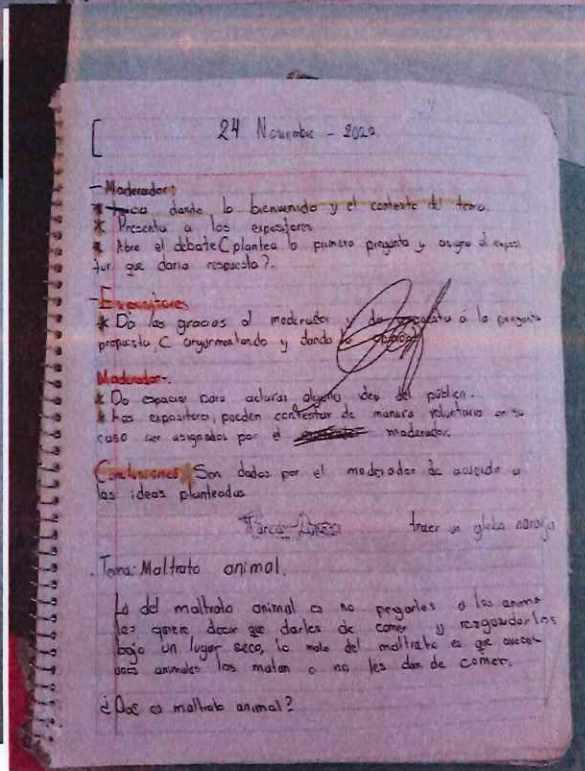 24 Noviembre - 2022
- Moderador:
* Inicia dando la bienvenida y el contexto del tema.
* Presenta a los expositores
* Abre el debate C plantea la primera pregunta y asigna al exposi
tor que daria respuesta?.
- Expositores
* Da las gracias al moderador y da respuesta a la pregunta
propuesta, C argumentando y dando la opinion
Moderador-.
* Da espacio para aclarar alguna idea del público.
* Los expositores, pueden contestar de manera voluntaria en su
caso ser asignados por el moderador.
Conclusiones * Son dadas por el moderador de acuerdo a
las ideas planteadas
traer un globo naranja
. Tema: Maltrato animal.
Lo del maltrato animal es no pegarles a los anima
les quiere decir que darles de comer y resguardarlos
bajo un lugar seco, lo malo del maltrato es que aveces
unos animales los matan o no les dan de comer.
¿Que es maltrato animal?